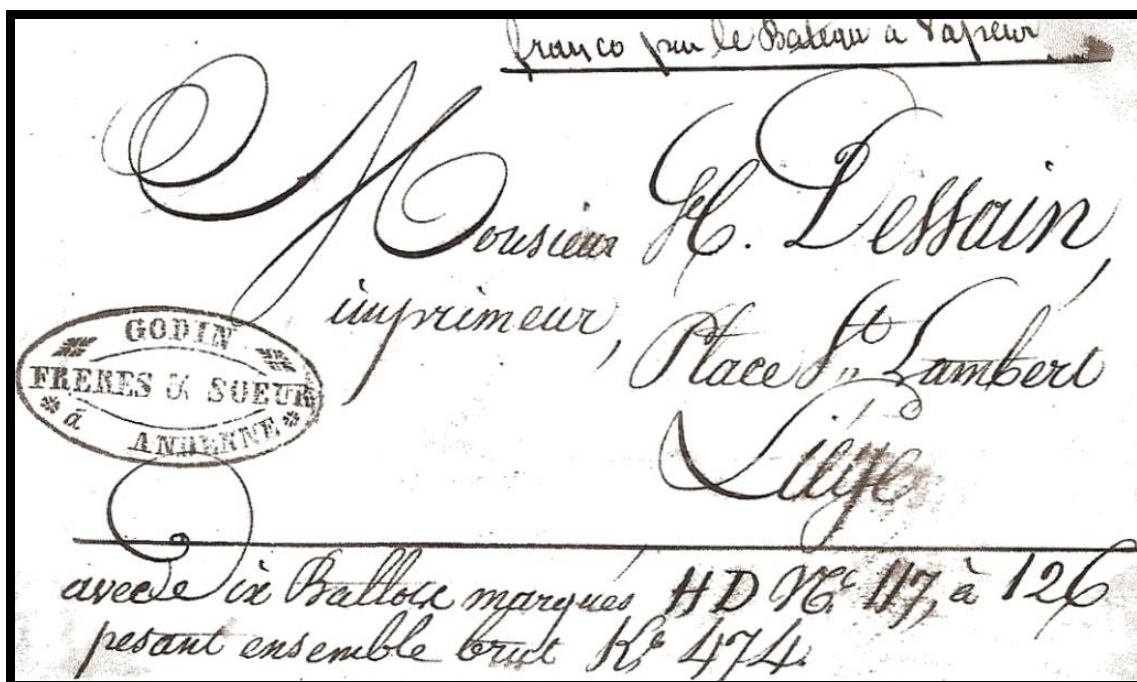 franco par le Bateau à Vapeur
Monsieur H. Dessain,
imprimeur,
Place St. Lambert
Liége
GODIN
FRERES & SOEUR
à ANDENNE
avec dix Ballots marqués HD No 117, à 126
pesant ensemble brut Ko 474.